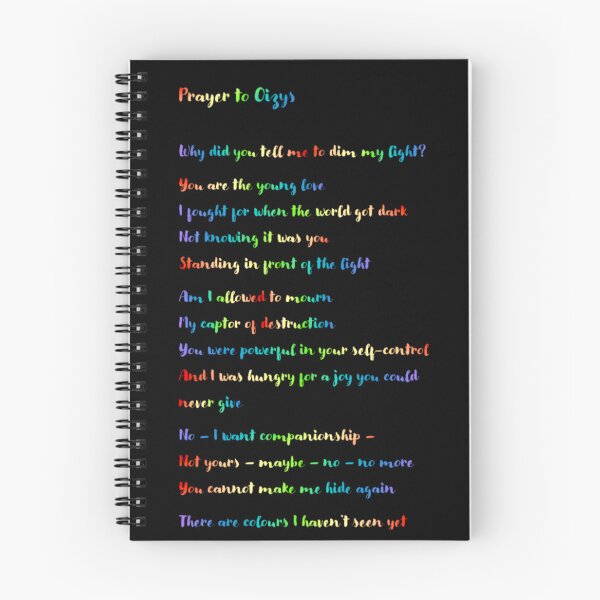 Prayer to Oizys
Why did you tell me to dim my light?
You are the young love
I fought for when the world got dark
Not knowing it was you
Standing in front of the light
Am I allowed to mourn
My captor of destruction
You were powerful in your self-control
And I was hungry for a joy you could
never give
No – I want companionship –
Not yours – maybe – no – no more
You cannot make me hide again
There are colours I haven't seen yet